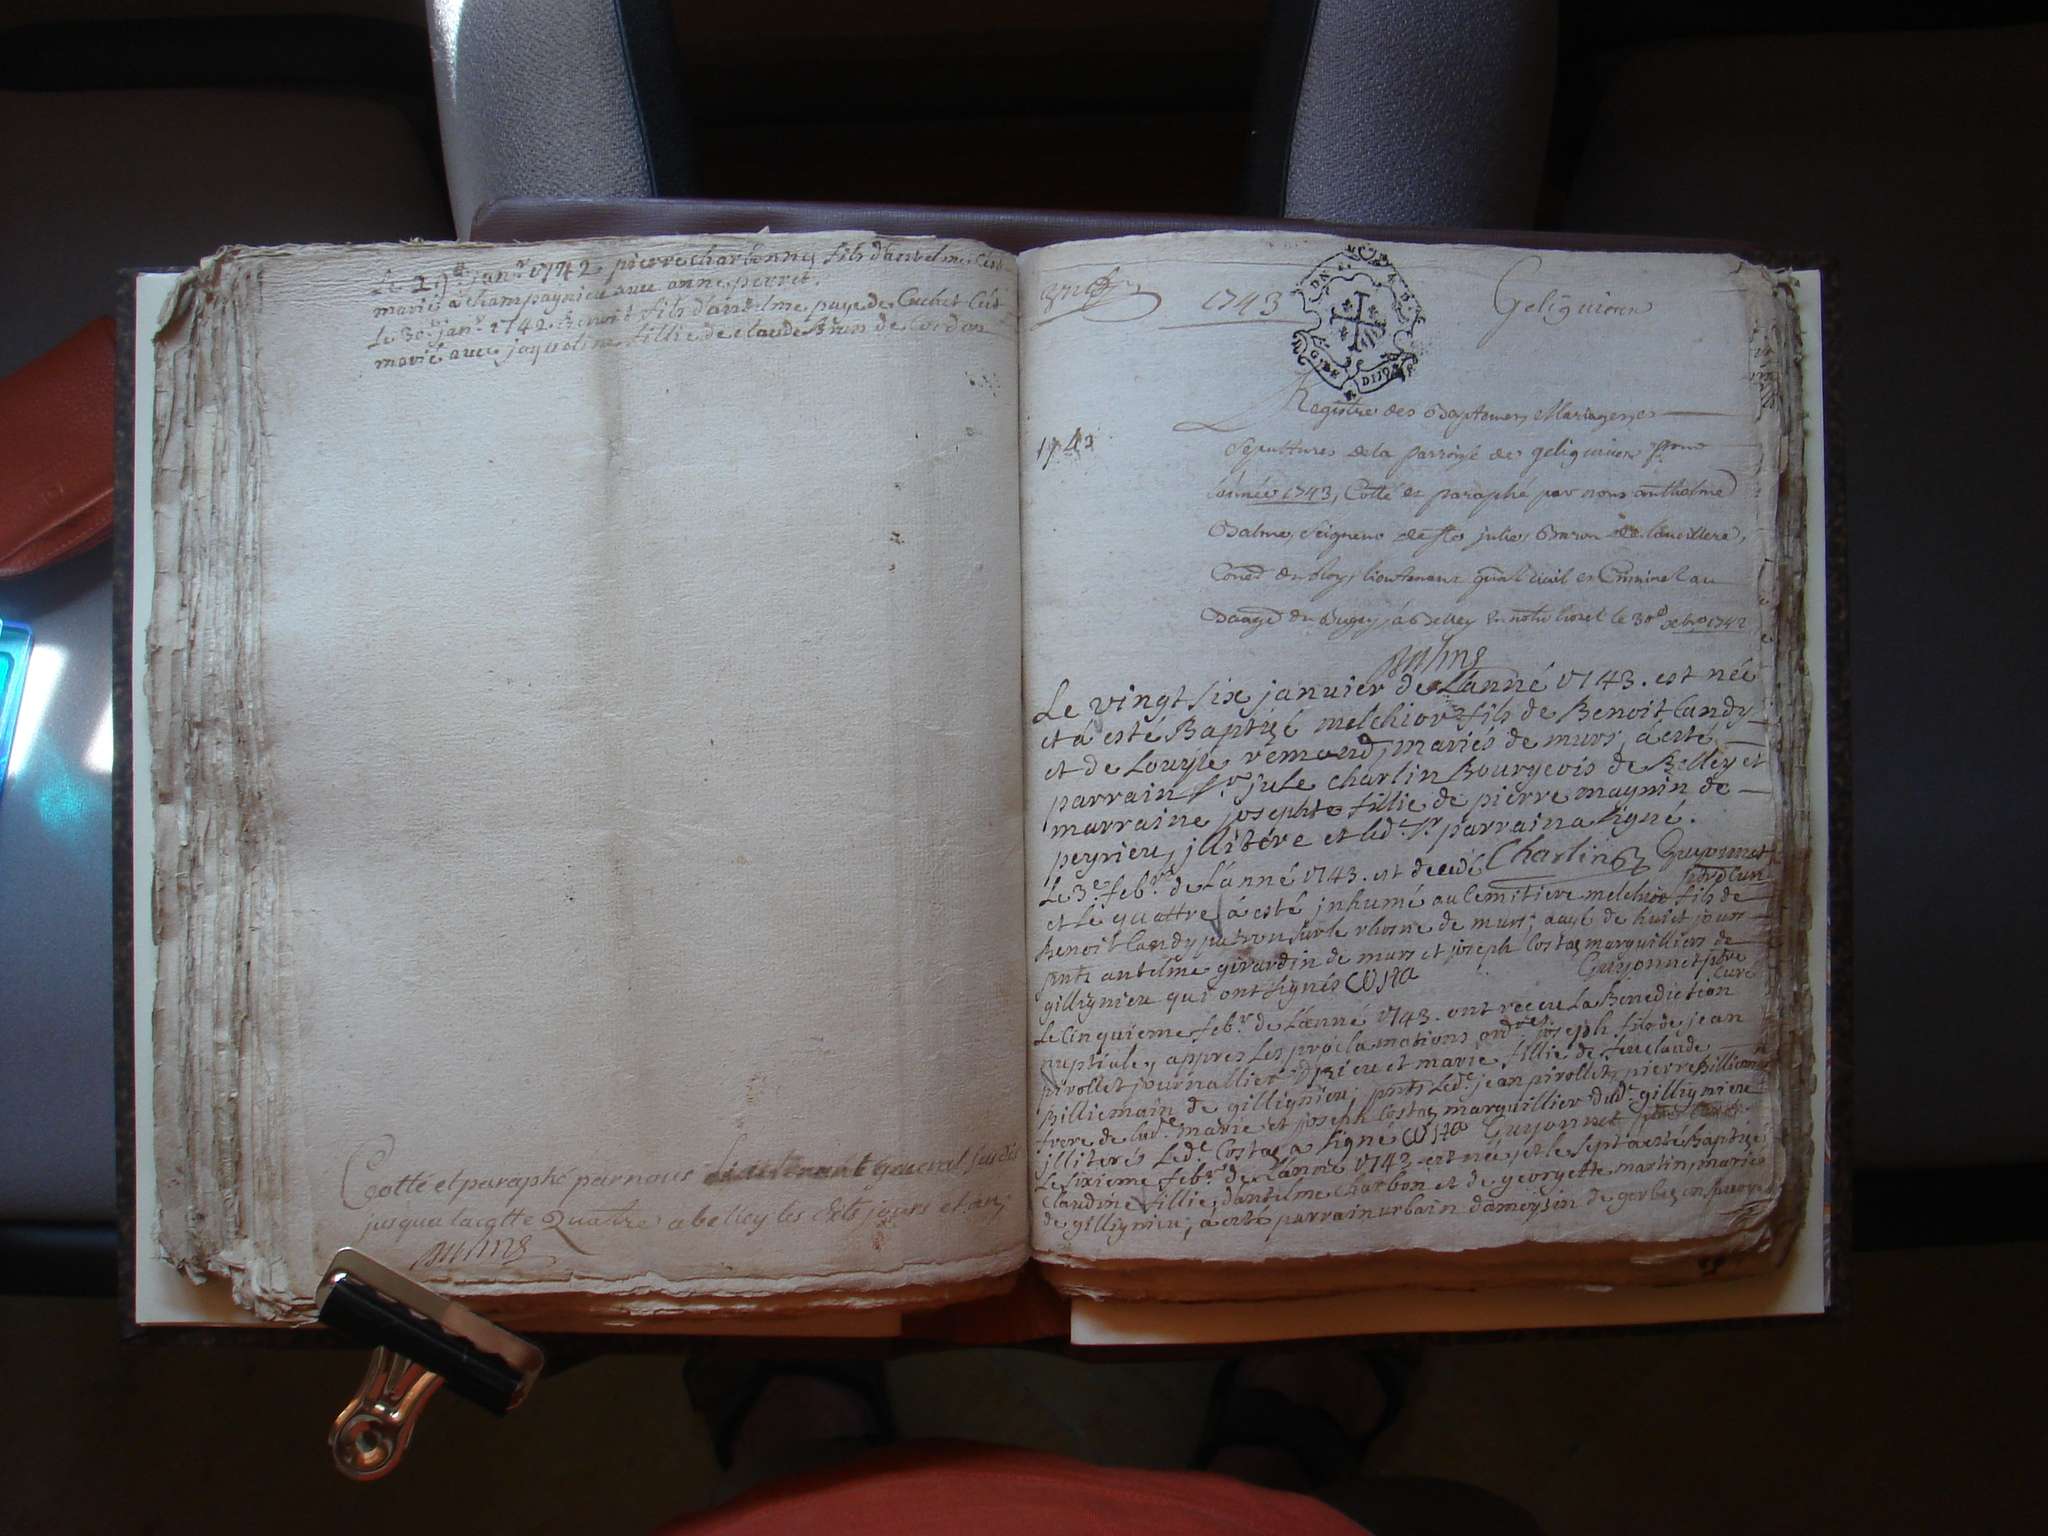 Le janr 1742 pierre charbonney fils d'antelme s'est
marié a champagnieu avec anne perret.
Le 30e janr 1742 Benoit fils d'antelme page de Cuchet s'est
marié avec jaqueline fillie de claude Brun de Cordon
Cotté et paraphé par nous Lieutenant general susdit
jusqua la cotte Quatre a belley les dits jours et an
1743
Geliguieu
GE DE DIJO
Registre des Baptemes, Mariages, et
Sepultures de la parroisse de geliguieu pour
l'année 1743, Cotté et paraphé par nous anthelme
Balme, Seigneur de Ste julie, Baron de
Coner du Roy, lieutenant gnal Civil et Criminel au
Baage du Bugey, à Belley En notre hotel le 30e 1742
1743
Le vingt six janvier de L'anné 1743. est née
et à esté Baptizé melchior fils de Benoit Candy
et de Louyse rémond, mariés de murs, à esté
parrain Sr jule charlin Bourgeois de Belley et
marraine josephte fillie de pierre magnin de
peyrieu, illitére et led. Sr parrain a signé.
Le 3e febvr de L'anné 1743. est decedé Charlin Guyonnet
et Le quattre à esté jnhumé au Cemitiere melchior fils de
Benoit Candy patron sur le rhosne de murs, aagé de huict jours
pnts antelme girardin de murs et joseph Costaz marguilliers de
gillignieu qui ont signés Costa Guyonnet ptre
Curé
Le Cinquieme febvr de L'anné 1743. ont receu La Benediction
nuptiale, appres Les proclamations ordres joseph fils de jean
pirollet journallier d'Izieu et marie fillie de feu claude
Billiemain de gillignieu, pnts Led. jean pirollet, pierre Billiemain
frere de lad. marie et joseph Costaz marguillier dud. gillignieu
illiteré Led. Costaz a signé Costa Guyonnet
Le Sixieme febvr de L'anné 1742 est née, et le sept a esté Baptizée
Claudine fillie d'antelme charbon et de georgette martin, mariés
de gillignieu, à esté parrain urbain damoysin de gerbaz en Savoye